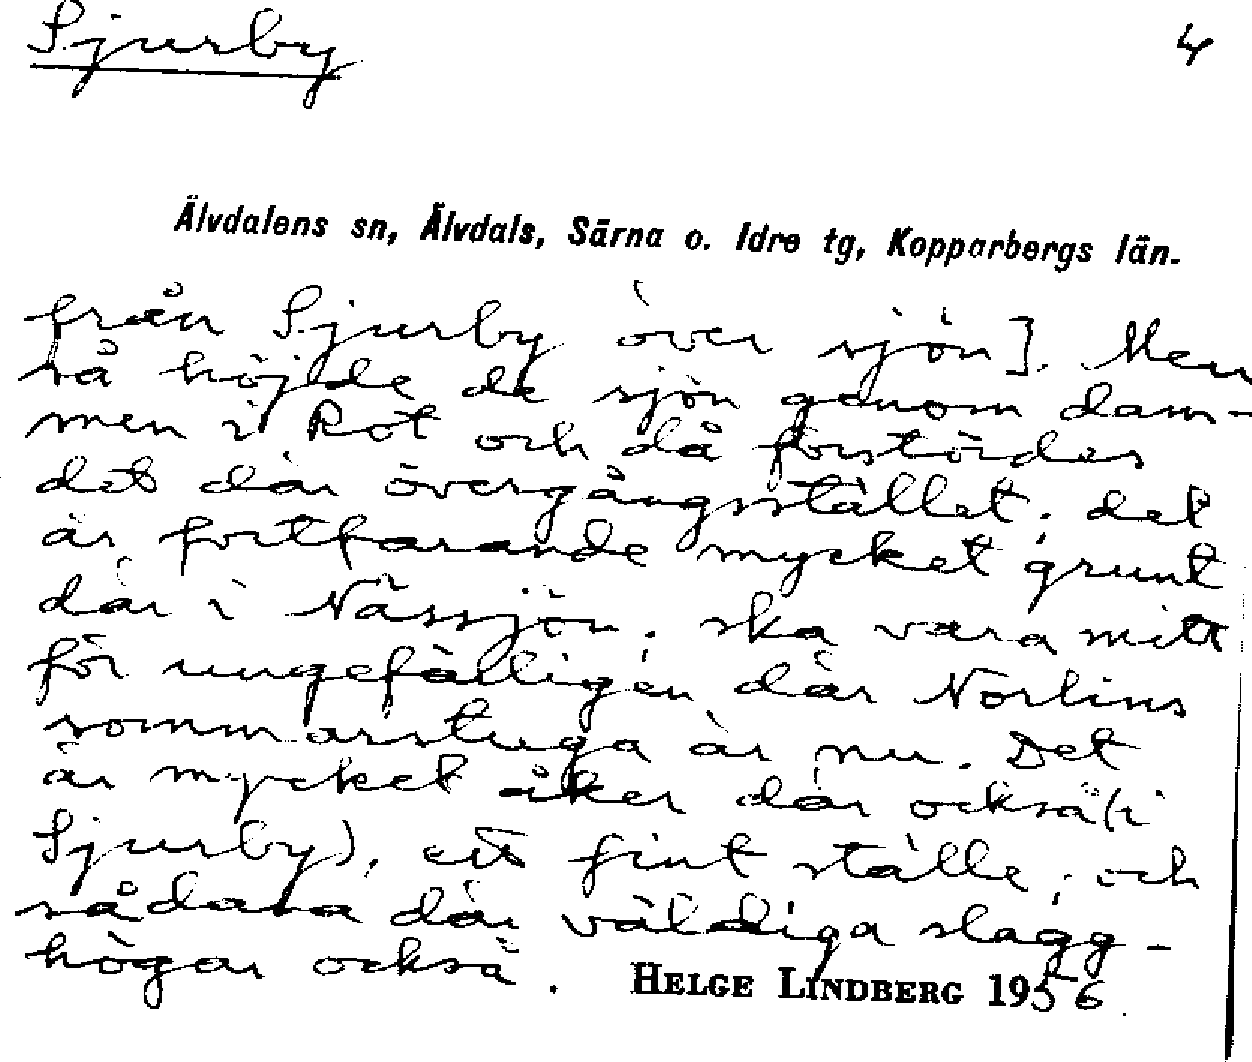 Sjurby 4
Älvdalens sn, Älvdals, Särna o. Idre tg, Kopparbergs län.
från Sjurby över sjön]. Men
så höjde de sjön genom dam-
men i Rot och då förstördes
det där övergångsstället; det
är fortfarande mycket grunt
där i Nässjön; ska vara mitt
för ungefärligen där Norlins
sommarstuga är nu. Det
är mycket åker där också (i
Sjurby), ett fint ställe; och
sådana där väldiga slagg-
högar också.
HELGE LINDBERG 1956